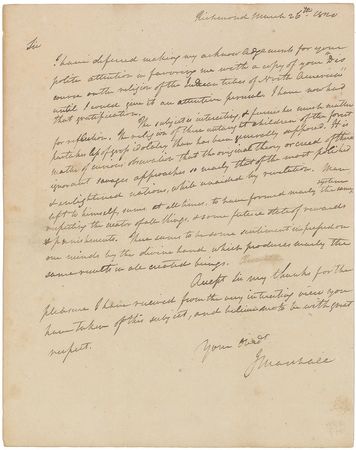 Richmond March 26th 1820
Sir
I have deferred making my acknowledgements for your
polite attention in favoring me with a copy of your "Dis
course on the religion of the Indian tribes of North America"
until I could give it an attentive perusal. I have now had
that gratification.
The subject is interesting, & furnishes much matter
for reflection. The religion of these untaught children of the forest
partakes less of gross idolatry than has been generally supposed. It is
matter of curious observation that the original theory or creed of these
ignorant savages approaches so nearly that of the most polished
& enlightened nations, while unaided by revelation. Man
left to himself, seems at all times, to have formed nearly the same notions
respecting the creator of all things, & some future state of rewards
& punishments. There seems to be some sentiment impressed on
our minds by the divine hand which produces nearly the
same results in all created beings.
Accept Sir my thanks for the
pleasure I have received from the very interesting view you
have taken of this subject, and believe me to be with great
respect.
Your Obedt
J Marshall